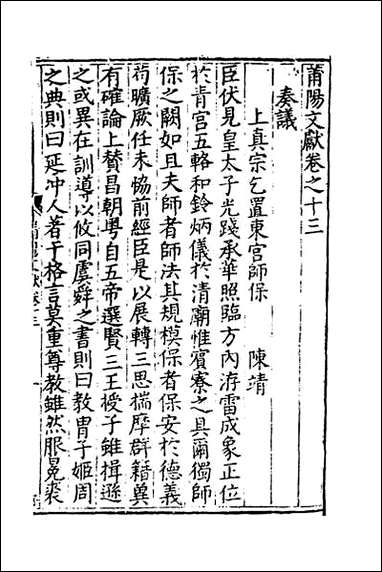 莆陽文獻卷之十三
奏議
上真宗乞置東宮師保　陳靖
臣伏見皇太子光踐承華照臨方內洊雷成象正位
於青宮五輅和鈴炳儀於清廟惟賓寮之具爾獨師
保之闕如且夫師者師法其規模保者保安於德義
苟曠厥任未協前經臣是以展轉三思揣摩群籍冀
有確論上贊昌朝粵自五帝選賢三王授子雖揖遜
之或異在訓導以攸同虞舜之書則曰教胄子姬周
之典則曰延冲人著于格言莫重尊教雖然服冕裘